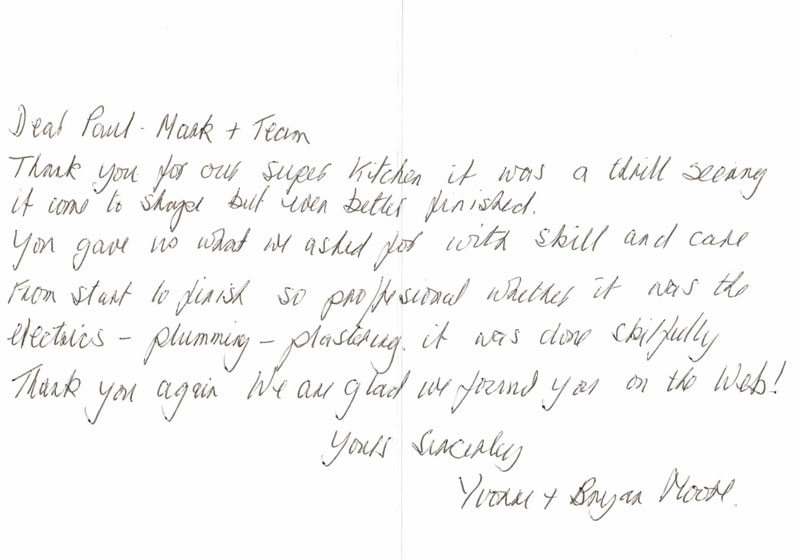 Dear Paul - Mark + Team
Thank you for our super kitchen it was a thrill seeing
it come to shape but even better finished.
You gave us what we asked for with skill and care
From start to finish so proffesional whether it was the
electrics - plumming - plastering. it was done skilfully
Thank you again We are glad we found you on the Web!
Yours Sincerley
Yvonne + Bryan Moore.